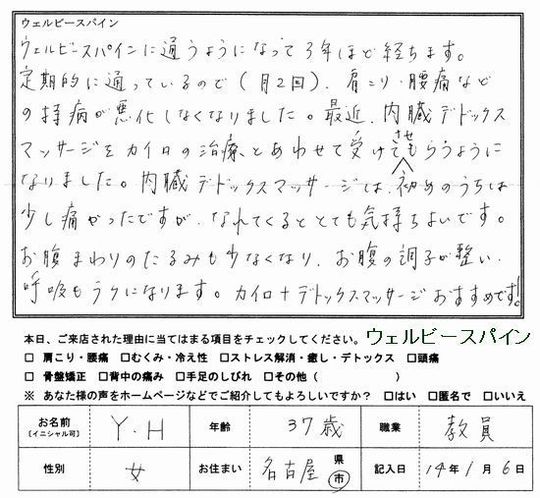 ウェルビースパイン
ウェルビースパインに通うようになって3年ほど経ちます。
定期的に通っているので(月2回)、肩こり・腰痛など
の持病が悪化しなくなりました。最近、内臓デドックス
マッサージをカイロの治療とあわせて受けさせてもらうように
なりました。内臓デドックスマッサージは、初めのうちは
少し痛かったですが、なれてくるととても気持ちよいです。
お腹まわりのたるみも少なくなり、お腹の調子が整い、
呼吸もラクになります。カイロ+デトックスマッサージおすすめです!
本日、ご来店された理由に当てはまる項目をチェックしてください。ウェルビースパイン
□ 肩こり・腰痛 □むくみ・冷え性 □ストレス解消・癒し・デトックス □頭痛
□ 骨盤矯正 □背中の痛み □手足のしびれ □その他( )
※ あなた様の声をホームページなどでご紹介してもよろしいですか? □はい □匿名で □いいえ
お名前 [イニシャル可] Y.H 年齢 37歳 職業 教員
性別 女 お住まい 名古屋 県 市 記入日 14年1月6日